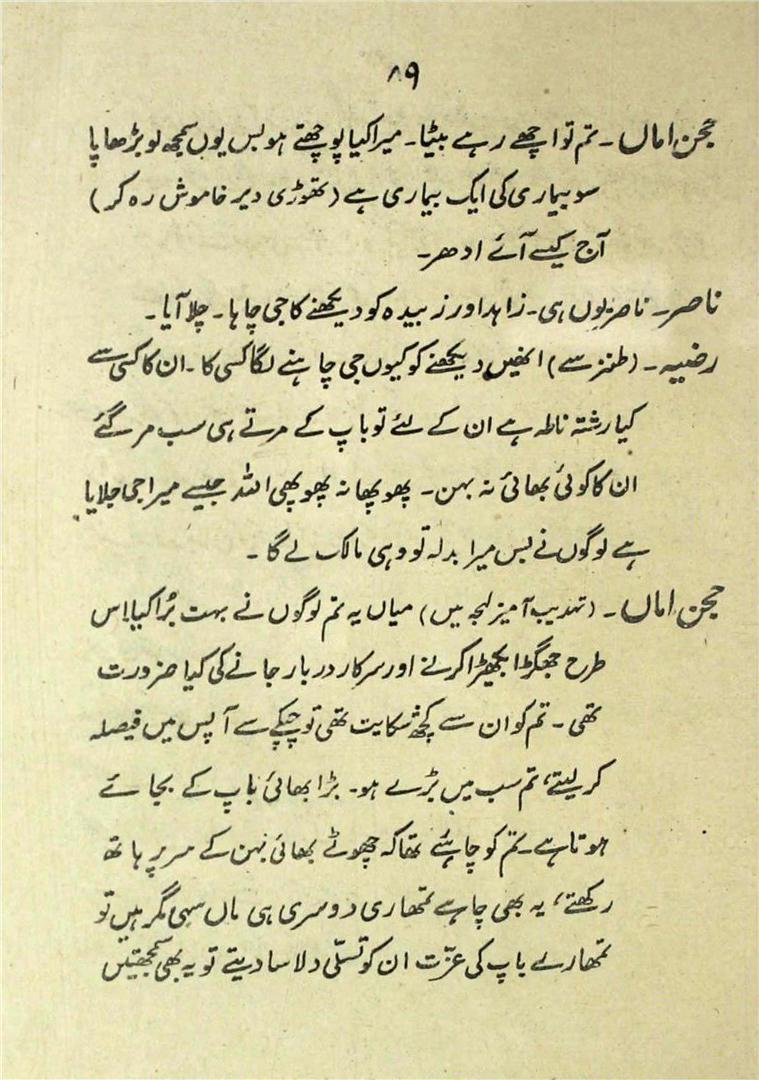 ۸۹
حجن اماں ۔ تم تو اچھے رہے بیٹا۔ میرا کیا پوچھتے ہو بس یوں سمجھ لو بڑھاپا
سو بیماری کی ایک بیماری ہے (تھوڑی دیر خاموش رہ کر)
آج کیسے آئے ادھر۔
ناصر۔ ناصر یوں ہی۔ زاہد اور زبیدہ کو دیکھنے کا جی چاہا۔ چلا آیا۔
رضیہ۔ (طنز سے) انھیں دیکھنے کو کیوں جی چاہنے لگا کسی کا ۔ ان کا کسی سے
کیا رشتہ ناطہ ہے ان کے لئے تو باپ کے مرتے ہی سب مر گئے
ان کا کوئی بھائی نہ بہن۔ پھوپھا نہ پھوپھی اللہ جیسے میرا جی جلایا
ہے لوگوں نے بس میرا بدلہ تو وہی مالک لے گا ۔
حجن اماں ۔ (تہدیب آمیز لہجہ میں) میاں یہ تم لوگوں نے بہت بُرا کیا اس
طرح جھگڑا بکھیڑا کرنے اور سرکار دربار جانے کی کیا ضرورت
تھی ۔ تم کو ان سے کچھ شکایت تھی تو چپکے سے آپس میں فیصلہ
کر لیتے، تم سب میں بڑے ہو۔ بڑا بھائی باپ کے بجائے
ہوتا ہے۔ تم کو چاہئے تھا کہ چھوٹے بھائی بہن کے سر پر ہاتھ
رکھتے، یہ بھی چاہے تمھاری دوسری ہی ماں سہی مگر ہیں تو
تمھارے باپ کی عزّت ان کو تسلّی دلاسا دیتے تو یہ بھی سمجھتیں